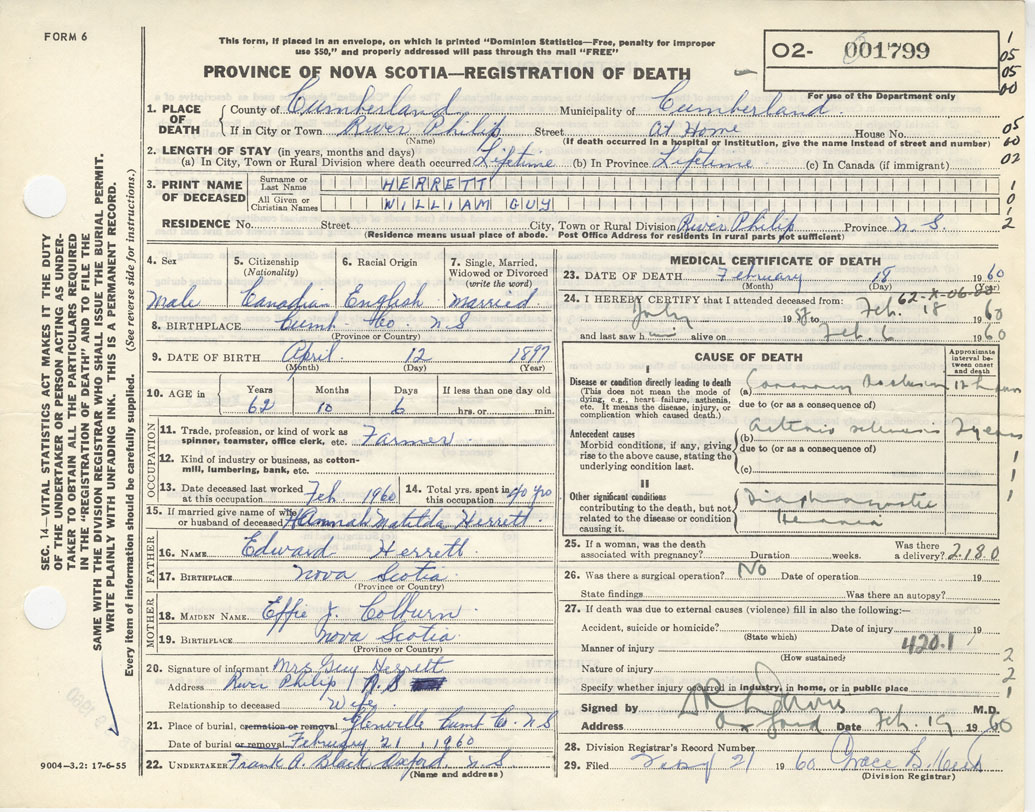 FORM 6
This form, if placed in an envelope, on which is printed "Dominion Statistics—Free, penalty for improper
use $50," and properly addressed will pass through the mail "FREE"
PROVINCE OF NOVA SCOTIA—REGISTRATION OF DEATH
02- 001799
For use of the Department only
1
05
05
00
05
60
02
1
0
1
2
1. PLACE OF DEATH
County of Cumberland Municipality of Cumberland
If in City or Town River Philip Street At Home House No.
(Name) (If death occurred in a hospital or institution, give the name instead of street and number)
2. LENGTH OF STAY (in years, months and days)
(a) In City, Town or Rural Division where death occurred Lifetime (b) In Province Lifetime (c) In Canada (if immigrant)
3. PRINT NAME OF DECEASED
Surname or Last Name HERRETT
All Given or Christian Names WILLIAM GUY
RESIDENCE No. Street City, Town or Rural Division River Philip Province N.S.
(Residence means usual place of abode. Post Office Address for residents in rural parts not sufficient)
4. Sex Male
5. Citizenship (Nationality) Canadian
6. Racial Origin English
7. Single, Married, Widowed or Divorced (write the word) Married
8. BIRTHPLACE Cumb. Co. N S
(Province or Country)
9. DATE OF BIRTH April 12 1897
(Month) (Day) (Year)
10. AGE in Years 62 Months 10 Days 6 If less than one day old hrs. or min.
OCCUPATION
11. Trade, profession, or kind of work as spinner, teamster, office clerk, etc. Farmer
12. Kind of industry or business, as cotton-mill, lumbering, bank, etc.
13. Date deceased last worked at this occupation Feb. 1960
14. Total yrs. spent in this occupation 40 yrs
15. If married give name of wife or husband of deceased Hannah Matilda Herrett
FATHER
16. NAME Edward Herrett
17. BIRTHPLACE Nova Scotia
(Province or Country)
MOTHER
18. MAIDEN NAME Effie J. Colburn
19. BIRTHPLACE Nova Scotia
(Province or Country)
20. Signature of informant Mrs Guy Herrett
Address River Philip N.S
Relationship to deceased Wife
21. Place of burial, cremation or removal Glenville Cumb Co. N S
Date of burial or removal February 21, 1960
22. UNDERTAKER Frank A. Black Oxford N S
(Name and address)
MEDICAL CERTIFICATE OF DEATH
23. DATE OF DEATH February 18 1960
(Month) (Day) (Year)
24. I HEREBY CERTIFY that I attended deceased from:
62-X-06-00
July 19 to Feb. 18 1960
and last saw him alive on Feb. 6 1960
CAUSE OF DEATH
Approximate interval between onset and death
I
Disease or condition directly leading to death
(This does not mean the mode of dying, e.g., heart failure, asthenia, etc. It means the disease, injury, or complication which caused death.)
(a) Coronary Occlusion 12 hours
due to (or as a consequence of)
Antecedent causes
Morbid conditions, if any, giving rise to the above cause, stating the underlying condition last.
(b) Arterio sclerosis 2 years
due to (or as a consequence of)
(c)
1
1
1
II
Other significant conditions contributing to the death, but not related to the disease or condition causing it.
Diaphragmatic Hernia
25. If a woman, was the death associated with pregnancy? Duration weeks. Was there a delivery? 2180
26. Was there a surgical operation? No Date of operation 19
State findings Was there an autopsy?
27. If death was due to external causes (violence) fill in also the following:—
Accident, suicide or homicide? Date of injury 19
(State which)
Manner of injury 420.1
(How sustained)
Nature of injury
Specify whether injury occurred in industry, in home, or in public place
2
2
1
Signed by M.D.
Address Oxford Date Feb. 19 1960
28. Division Registrar's Record Number
29. Filed 21 1960 Grace B.
(Division Registrar)
SEC. 14—VITAL STATISTICS ACT MAKES IT THE DUTY
OF THE UNDERTAKER OR PERSON ACTING AS UNDER-
TAKER TO OBTAIN ALL THE PARTICULARS REQUIRED
IN THE "REGISTRATION OF DEATH" AND TO FILE THE
SAME WITH THE DIVISION REGISTRAR WHO SHALL ISSUE THE BURIAL PERMIT.
WRITE PLAINLY WITH UNFADING INK. THIS IS A PERMANENT RECORD.
Every item of information should be carefully supplied. (See reverse side for instructions.)
9004—3.2: 17-6-55